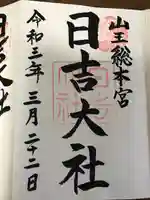 山王総本宮
日吉大社
令和三年三月二十二日